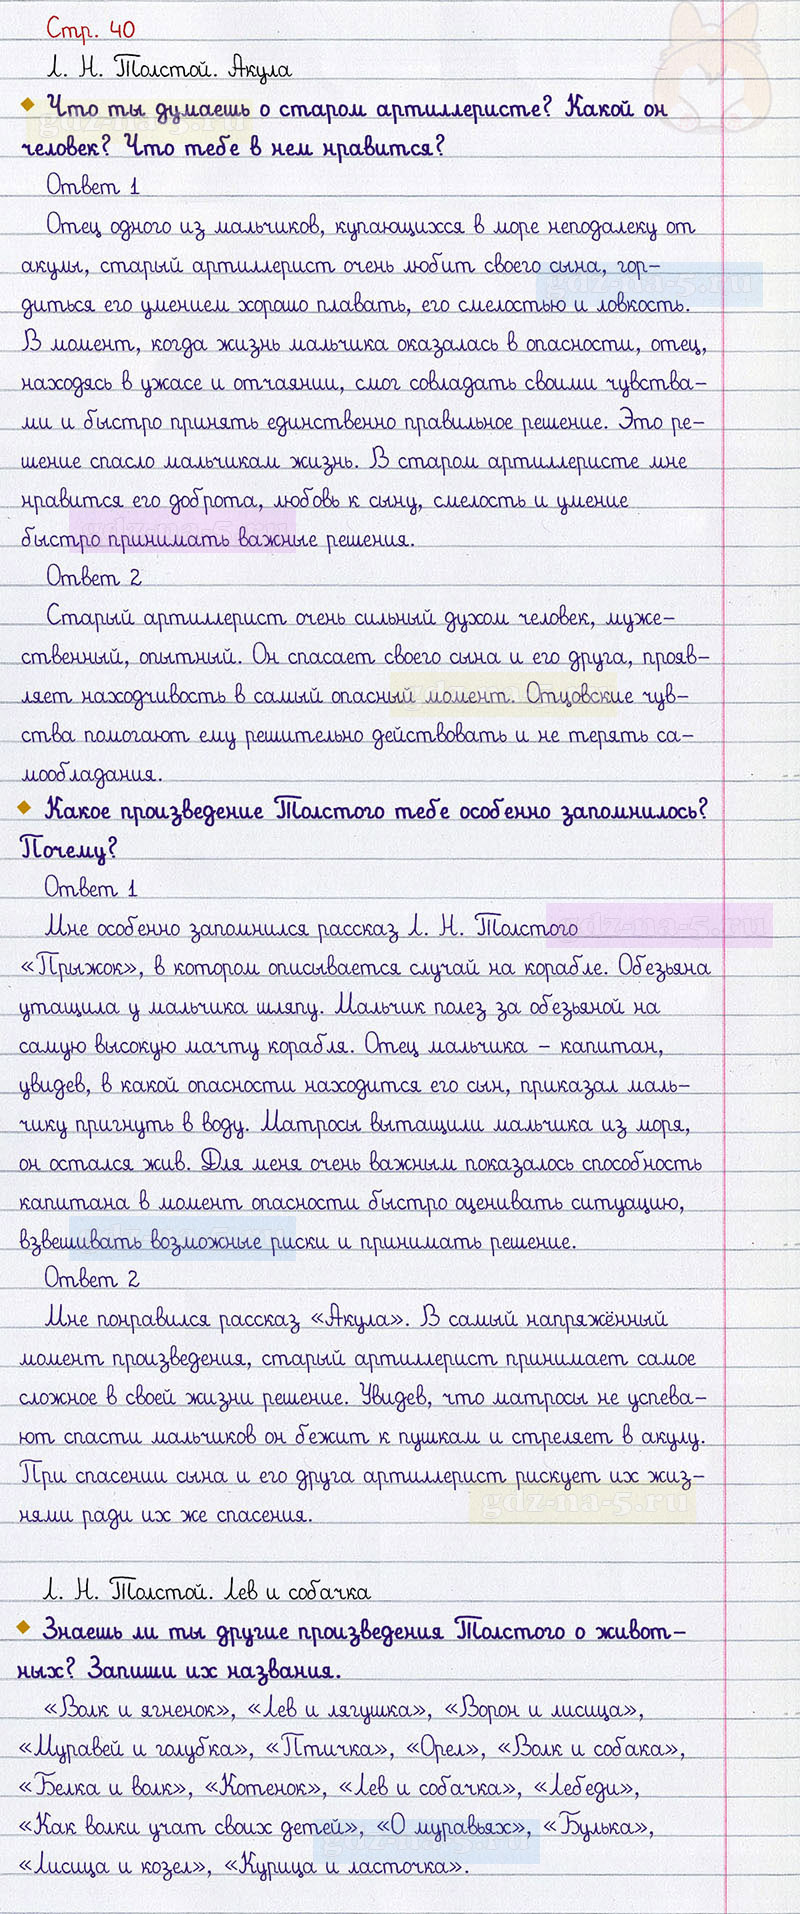 Стр. 40
Л. Н. Толстой. Акула
Что ты думаешь о старом артиллеристе? Какой он
человек? Что тебе в нем нравится?
Ответ 1
Отец одного из мальчиков, купающихся в море неподалеку от
акулы, старый артиллерист очень любит своего сына, гор-
диться его умением хорошо плавать, его смелостью и ловкость.
В момент, когда жизнь мальчика оказалась в опасности, отец,
находясь в ужасе и отчаянии, смог совладать своими чувства-
ми и быстро принять единственно правильное решение. Это ре-
шение спасло мальчикам жизнь. В старом артиллеристе мне
нравится его доброта, любовь к сыну, смелость и умение
быстро принимать важные решения.
Ответ 2
Старый артиллерист очень сильный духом человек, муже-
ственный, опытный. Он спасает своего сына и его друга, прояв-
ляет находчивость в самый опасный момент. Отцовские чув-
ства помогают ему решительно действовать и не терять са-
мообладания.
Какое произведение Толстого тебе особенно запомнилось?
Почему?
Ответ 1
Мне особенно запомнился рассказ Л. Н. Толстого
«Прыжок», в котором описывается случай на корабле. Обезьяна
утащила у мальчика шляпу. Мальчик полез за обезьяной на
самую высокую мачту корабля. Отец мальчика – капитан,
увидев, в какой опасности находится его сын, приказал маль-
чику пригнуть в воду. Матросы вытащили мальчика из моря,
он остался жив. Для меня очень важным показалось способность
капитана в момент опасности быстро оценивать ситуацию,
взвешивать возможные риски и принимать решение.
Ответ 2
Мне понравился рассказ «Акула». В самый напряжённый
момент произведения, старый артиллерист принимает самое
сложное в своей жизни решение. Увидев, что матросы не успева-
ют спасти мальчиков он бежит к пушкам и стреляет в акулу.
При спасении сына и его друга артиллерист рискует их жиз-
нями ради их же спасения.
Л. Н. Толстой. Лев и собачка
Знаешь ли ты другие произведения Толстого о живот-
ных? Запиши их названия.
«Волк и ягненок», «Лев и лягушка», «Ворон и лисица»,
«Муравей и голубка», «Птичка», «Орел», «Волк и собака»,
«Белка и волк», «Котенок», «Лев и собачка», «Лебеди»,
«Как волки учат своих детей», «О муравьях», «Булька»,
«Лисица и козел», «Курица и ласточка».
gdz-na-5.ru
gdz-na-5.ru
gdz-na-5.ru
gdz-na-5.ru
gdz-na-5.ru
gdz-na-5.ru
gdz-na-5.ru
gdz-na-5.ru